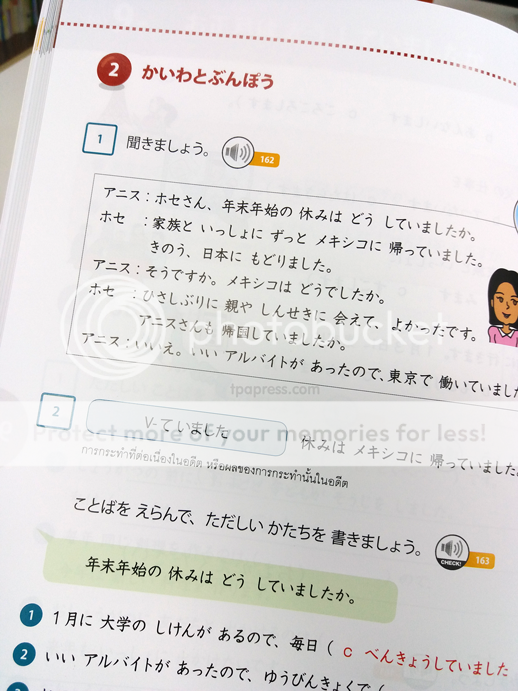 2 かいわとぶんぽう
1 聞きましょう。 162
アニス：ホセさん、年末年始の 休みは どう していましたか。
ホセ ：家族と いっしょに ずっと メキシコに 帰っていました。
きのう、日本に もどりました。
アニス：そうですか。メキシコは どうでしたか。
ホセ ：ひさしぶりに 親や しんせきに 会えて、よかったです。
アニスさんも 帰国していましたか。
アニス：いいえ。いい アルバイトが あったので、東京で 働いていました
photobucket
tpapress.com
Protect more of your memories for less!
2 V-て いました 休みは メキシコに 帰っていました
การกระทำที่ต่อเนื่องในอดีต หรือผลของการกระทำนั้นในอดีต
ことばを えらんで、ただしい かたちを 書きましょう。 CHECK! 163
年末年始の 休みは どう していましたか。
1 1月に 大学の しけんが あるので、毎日 ( c べんきょうしていました
2 いい アルバイトが あったので、ゆうびんきょくで (